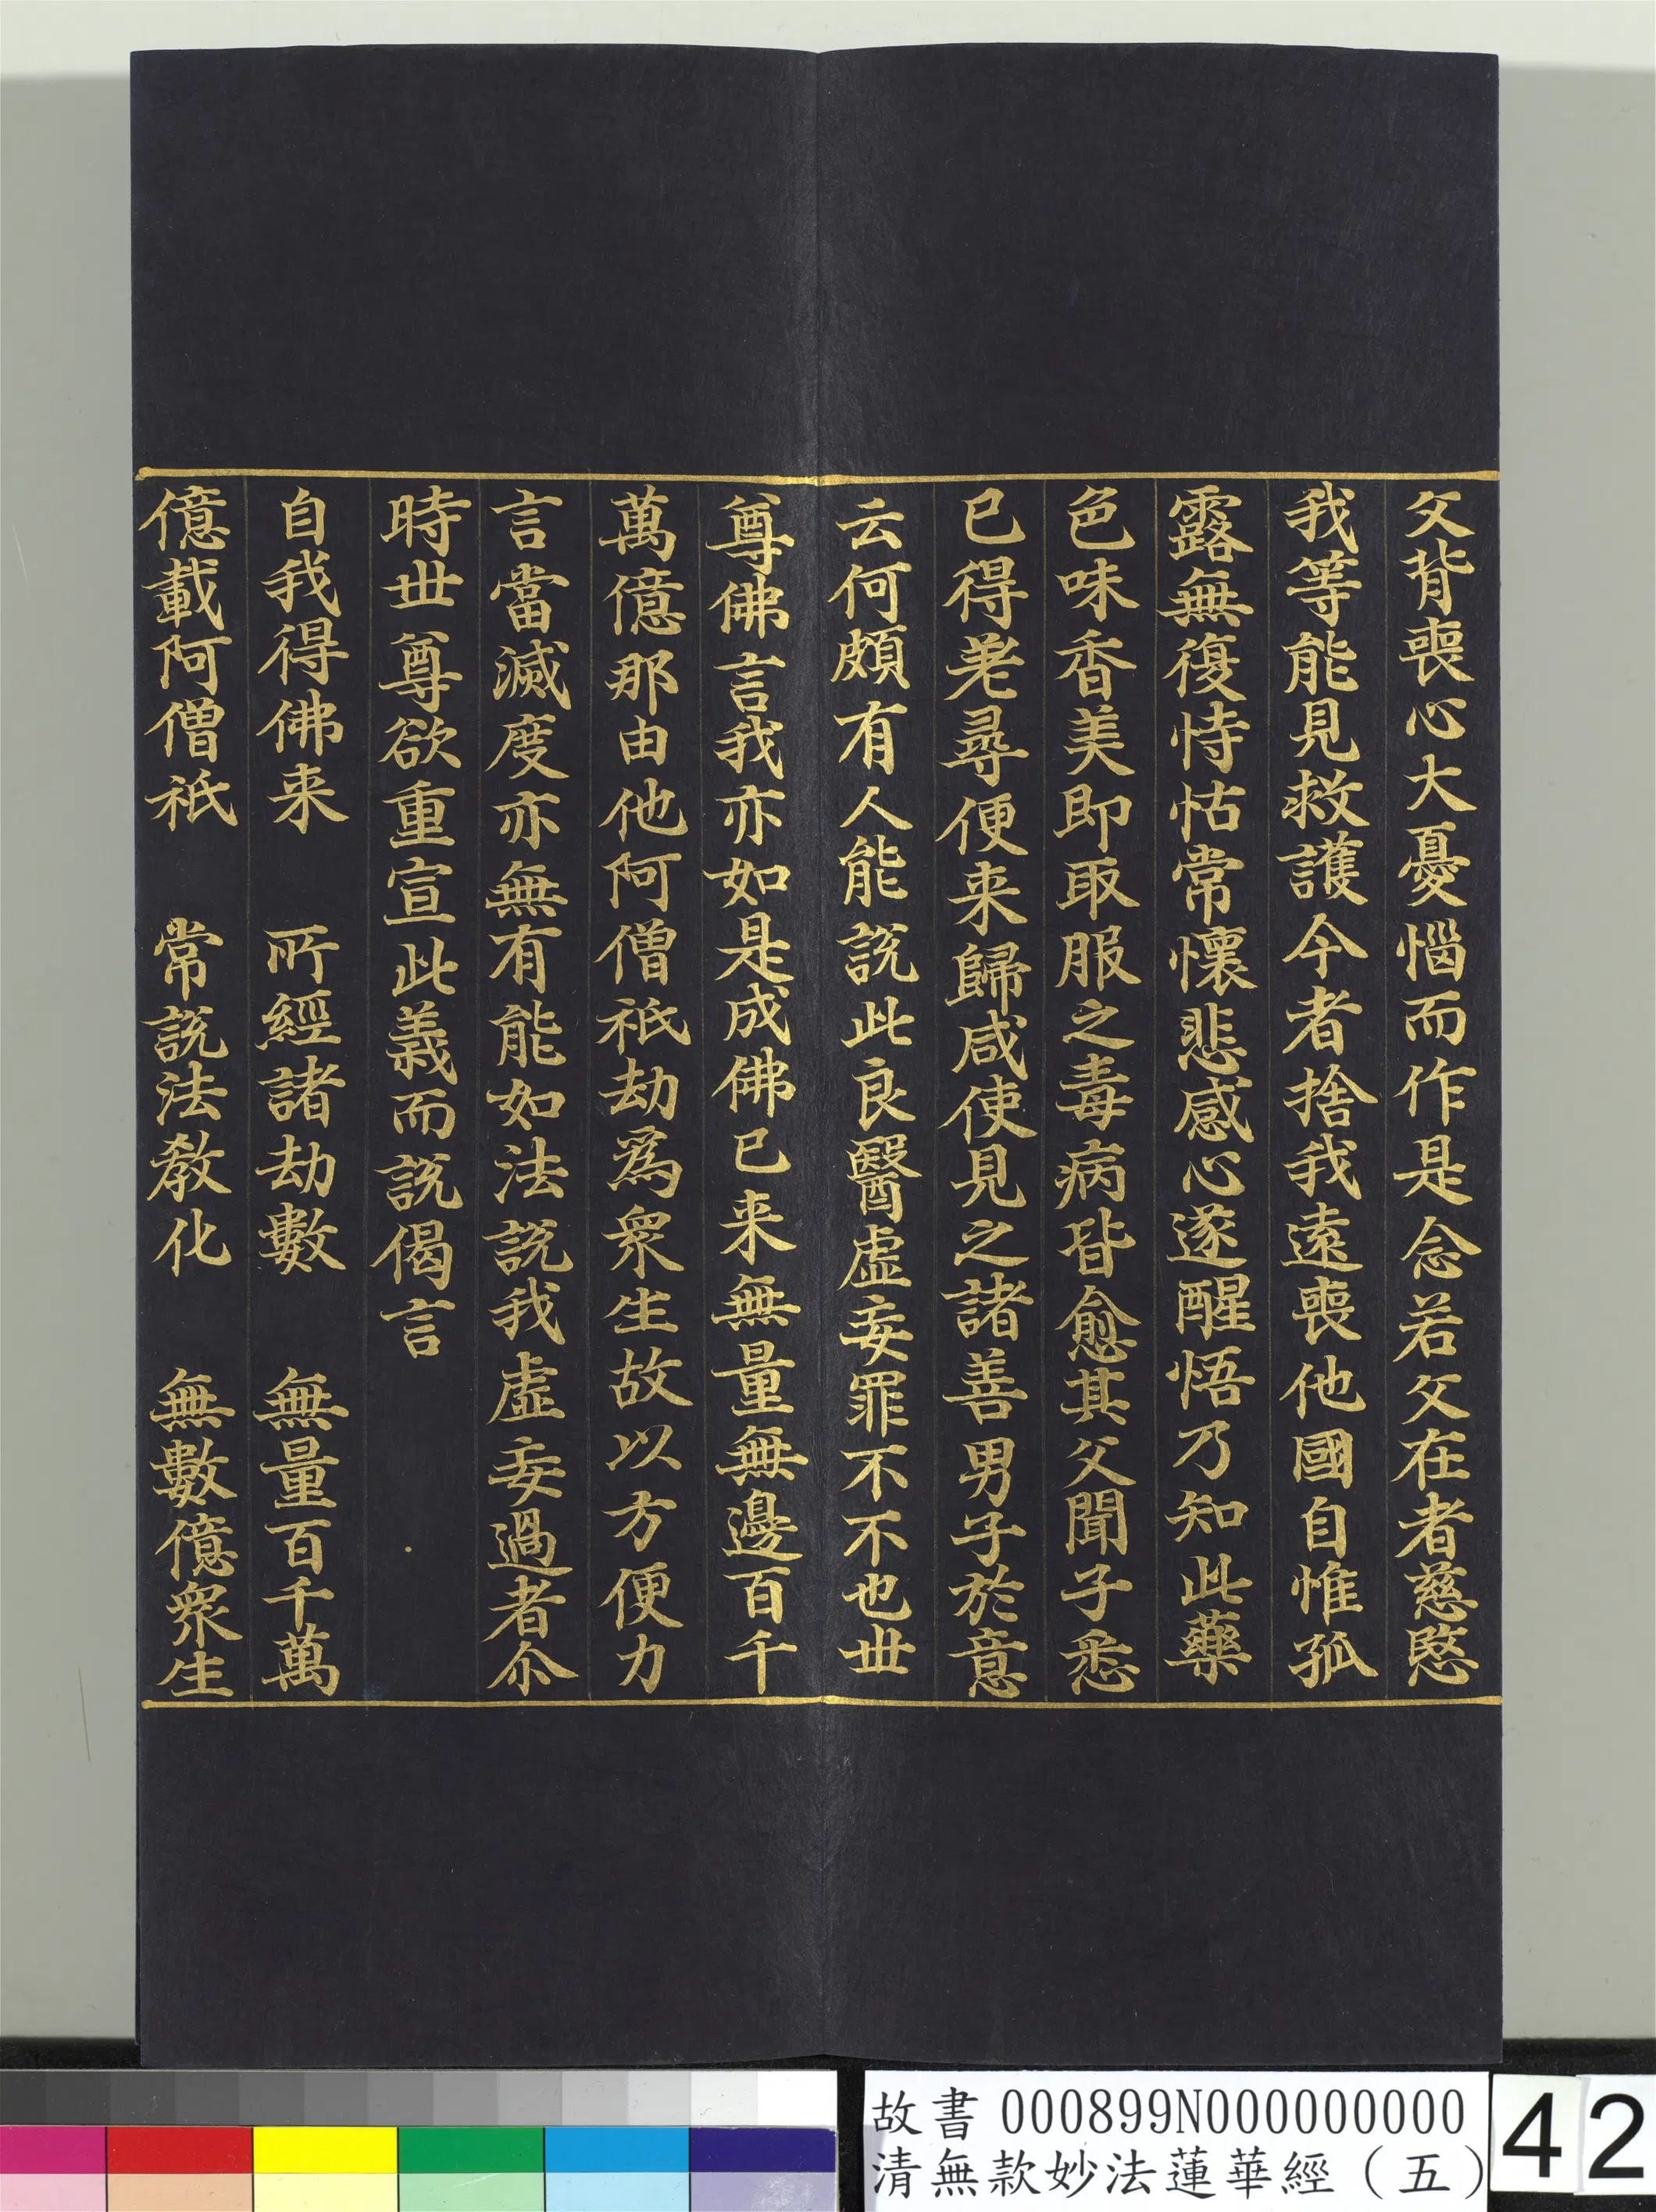 父背喪心大憂惱而作是念若父在者慈愍
我等能見救護今者捨我遠喪他國自惟孤
露無復恃怙常懷悲感心遂醒悟乃知此藥
色味香美即取服之毒病皆愈其父聞子悉
已得差尋便来歸咸使見之諸善男子於意
云何頗有人能說此良醫虛妄罪不不也世
尊佛言我亦如是成佛已来無量無邊百千
萬億那由他阿僧祇劫為眾生故以方便力
言當滅度亦無有能如法說我虛妄過者尒
時世尊欲重宣此義而說偈言
自我得佛来 所經諸劫數 無量百千萬
億載阿僧祇 常說法教化 無數億眾生
故書 000899N000000000 42
清無款妙法蓮華經（五）